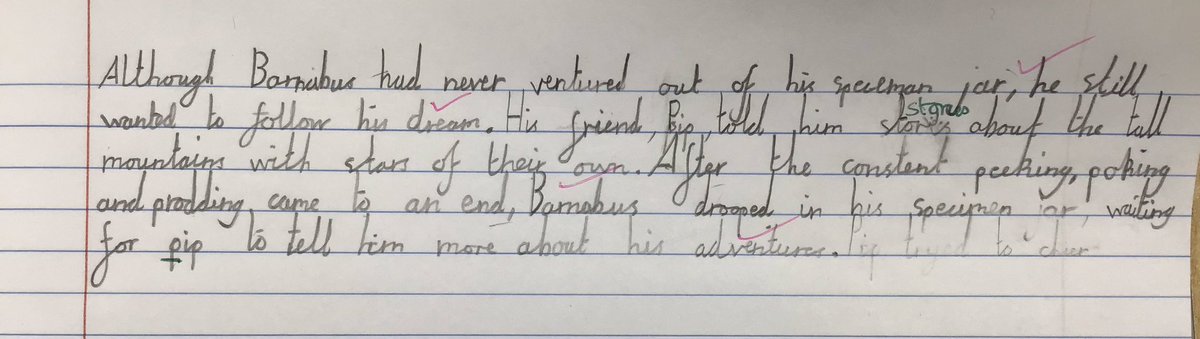 Although Barnabus had never ventured out of his speciman jar, he still
wanted to follow his dream. His friend, Pip, told him storys stories about the tall
mountains with stars of their own. After the constent peeking, poking
and prodding came to an end, Barnabus drooped in his specimen jar, waiting
for pip to tell him more about his adventures. Pip tryed to cheer